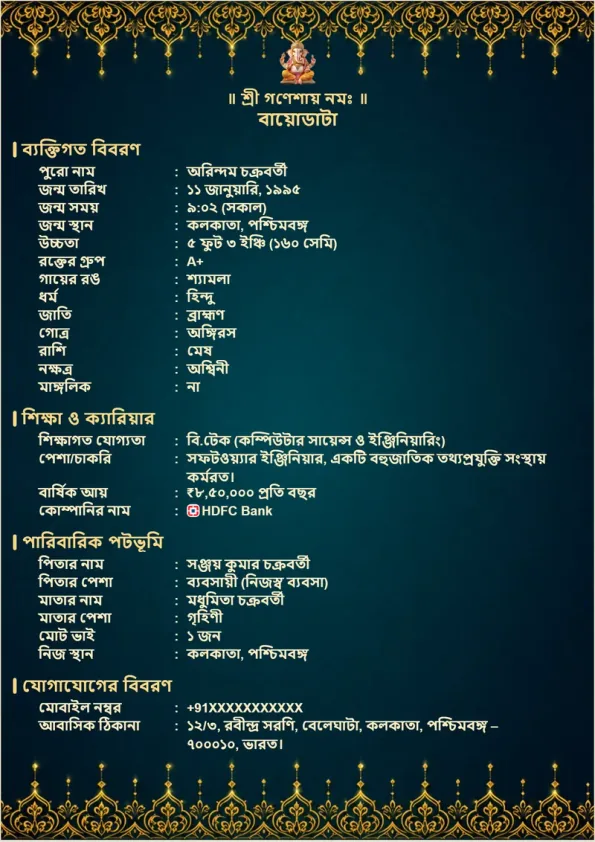 ॥ শ্রী গণেশায় নমঃ ॥
বায়োডাটা
ব্যক্তিগত বিবরণ
পুরো নাম : অরিন্দম চক্রবর্তী
জন্ম তারিখ : ১১ জানুয়ারি, ১৯৯৫
জন্ম সময় : ৯:০২ (সকাল)
জন্ম স্থান : কলকাতা, পশ্চিমবঙ্গ
উচ্চতা : ৫ ফুট ৩ ইঞ্চি (১৬০ সেমি)
রক্তের গ্রুপ : A+
গায়ের রঙ : শ্যামলা
ধর্ম : হিন্দু
জাতি : ব্রাহ্মণ
গোত্র : অঙ্গিরস
রাশি : মেষ
নক্ষত্র : অশ্বিনী
মাঙ্গলিক : না
শিক্ষা ও ক্যারিয়ার
শিক্ষাগত যোগ্যতা : বি.টেক (কম্পিউটার সায়েন্স ও ইঞ্জিনিয়ারিং)
পেশা/চাকরি : সফটওয়্যার ইঞ্জিনিয়ার, একটি বহুজাতিক তথ্যপ্রযুক্তি সংস্থায়
কর্মরত।
বার্ষিক আয় : ₹৮,৫০,০০০ প্রতি বছর
কোম্পানির নাম : HDFC Bank
পারিবারিক পটভূমি
পিতার নাম : সঞ্জয় কুমার চক্রবর্তী
পিতার পেশা : ব্যবসায়ী (নিজস্ব ব্যবসা)
মাতার নাম : মধুমিতা চক্রবর্তী
মাতার পেশা : গৃহিণী
মোট ভাই : ১ জন
নিজ স্থান : কলকাতা, পশ্চিমবঙ্গ
যোগাযোগের বিবরণ
মোবাইল নম্বর : +91XXXXXXXXXXX
আবাসিক ঠিকানা : ১২/৩, রবীন্দ্র সরণি, বেলেঘাটা, কলকাতা, পশ্চিমবঙ্গ –
৭০০০১০, ভারত।